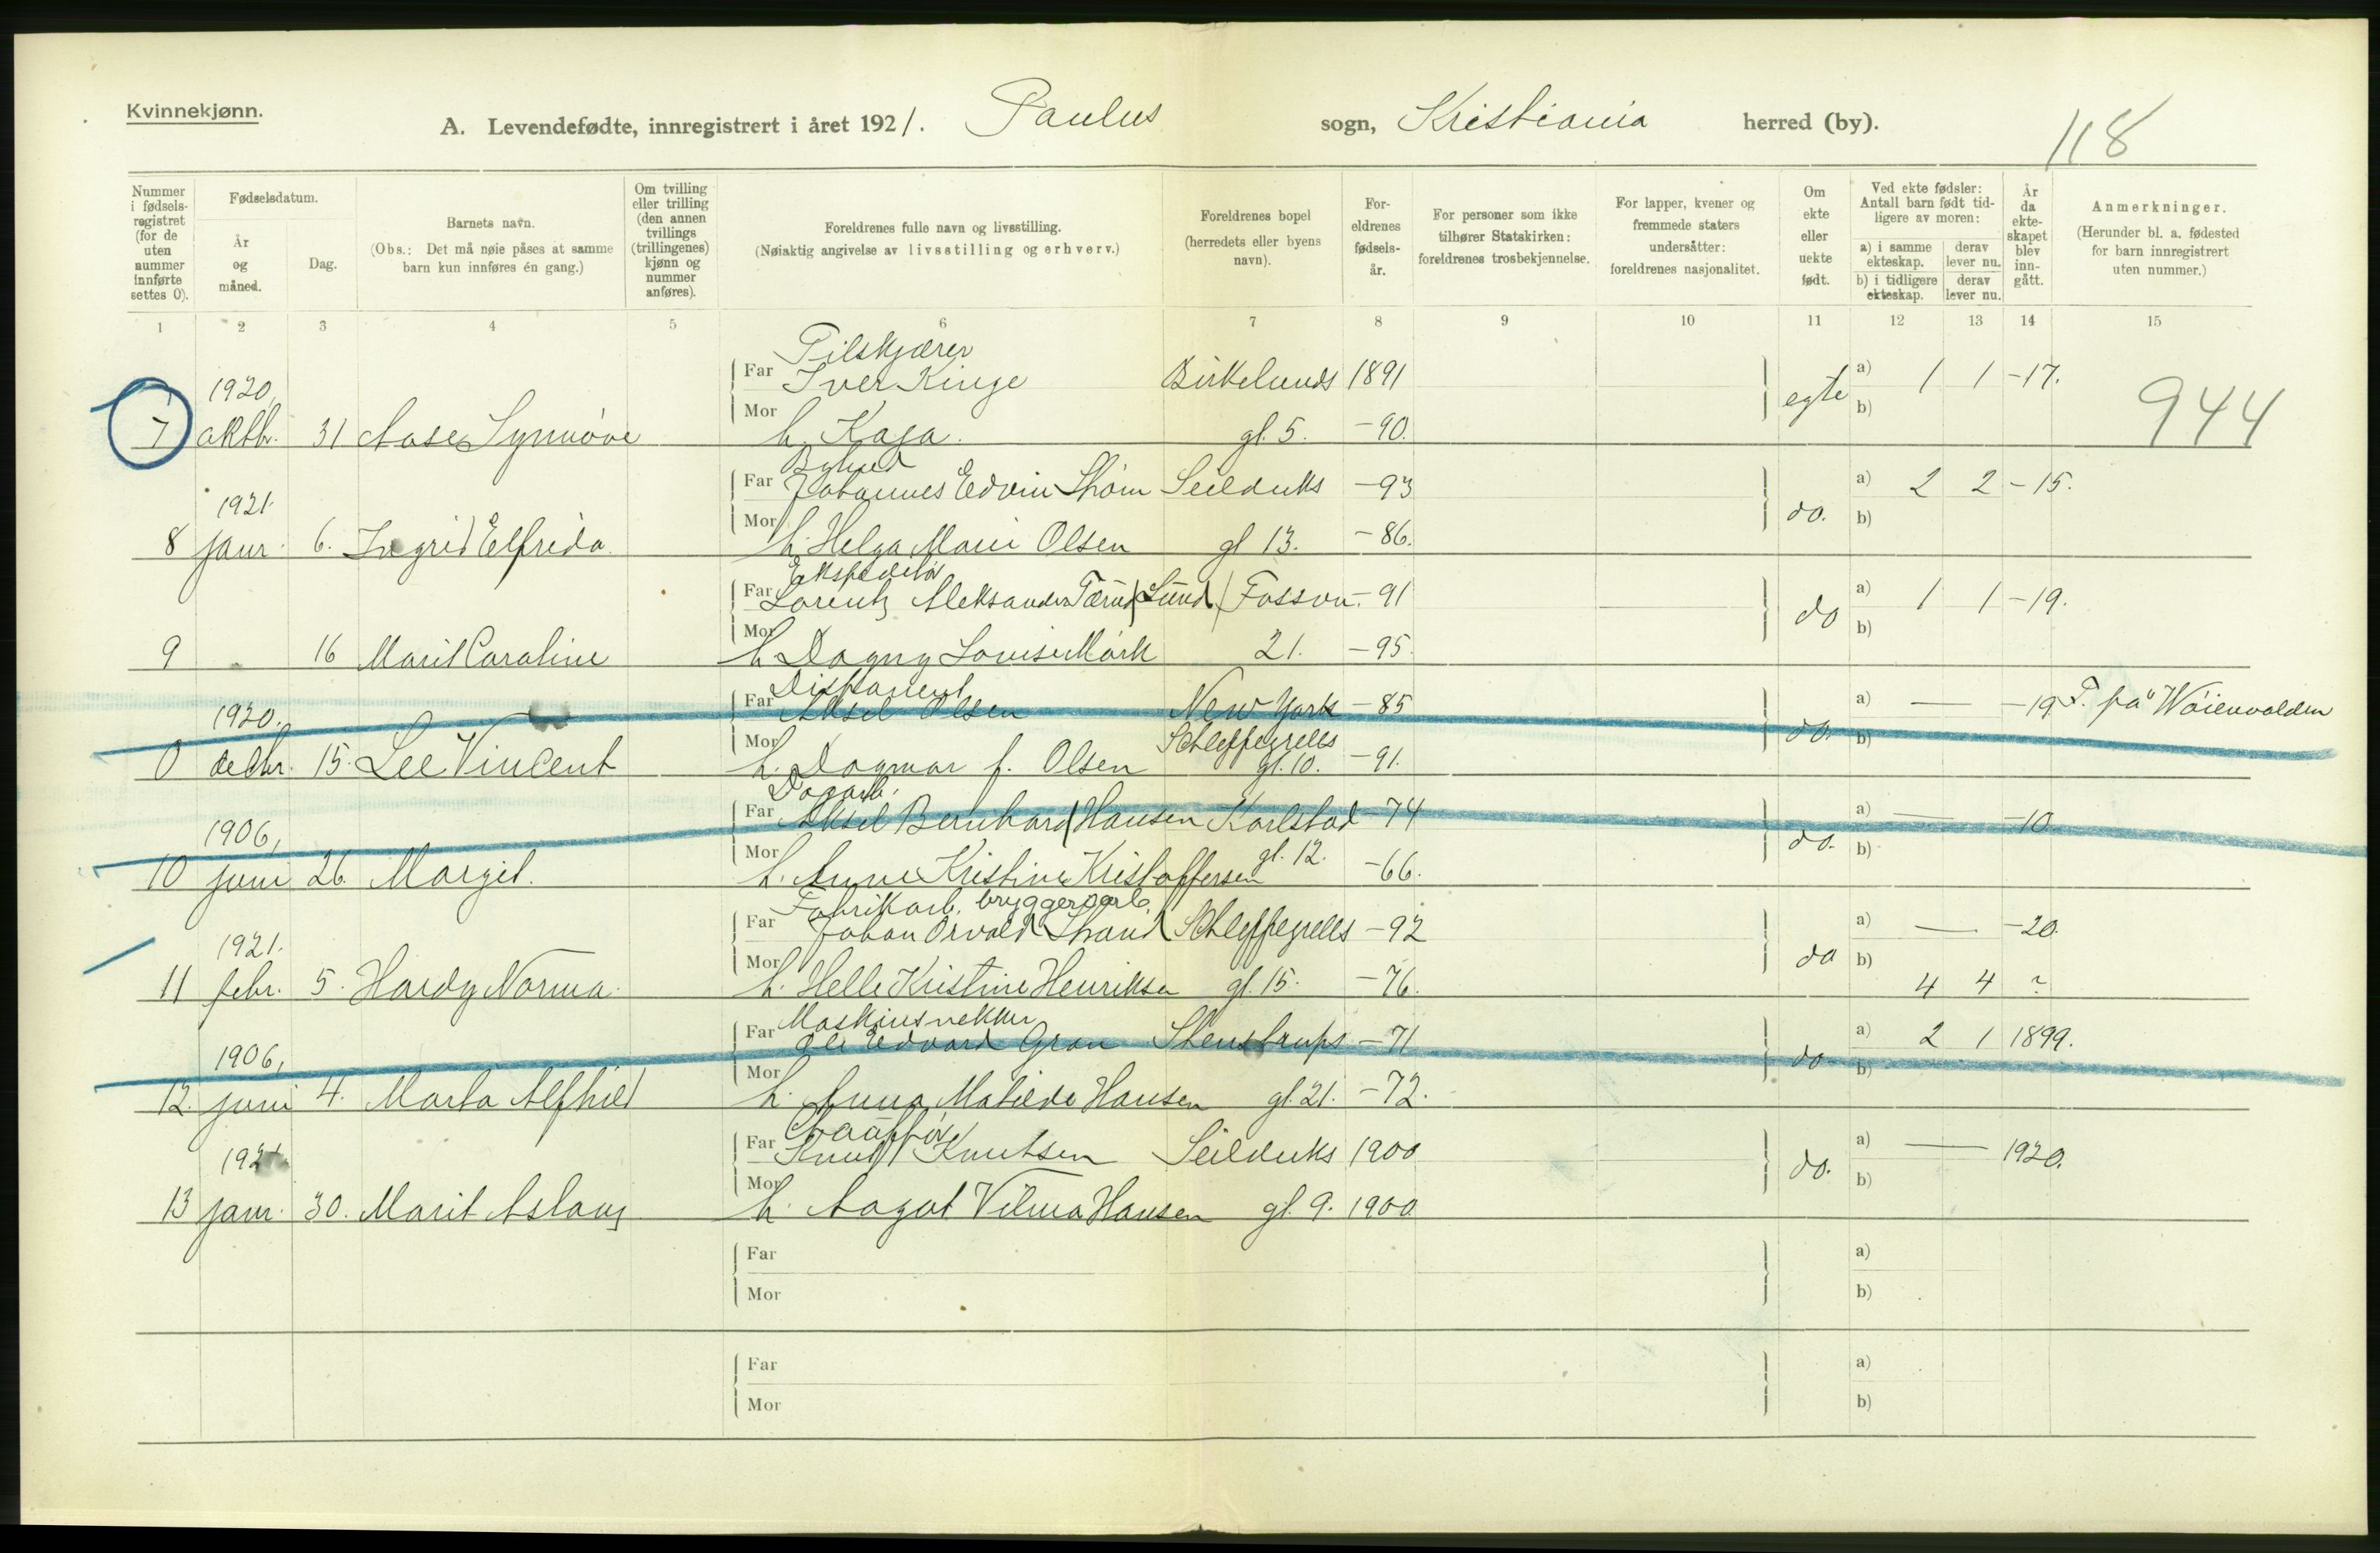 Kvinnekjønn.
A. Levendefødte, innregistrert i året 1921. Paulus sogn, Kristiania herred (by).
118
Nummer i fødselsregistret (for de uten nummer innførte settes 0).
Fødselsdatum.
År og måned.
Dag.
Barnets navn.
(Obs.: Det må nøie påses at samme barn kun innføres én gang.)
Om tvilling eller trilling (den annen tvillings (trillingenes) kjønn og nummer anføres).
Foreldrenes fulle navn og livsstilling.
(Nøiaktig angivelse av livsstilling og erhverv.)
Foreldrenes bopel (herredets eller byens navn).
Foreldrenes fødselsår.
For personer som ikke tilhører Statskirken: foreldrenes trosbekjennelse.
For lapper, kvener og fremmede staters undersåtter: foreldrenes nasjonalitet.
Om ekte eller uekte født.
Ved ekte fødsler: Antall barn født tidligere av moren:
a) i samme ekteskap. derav lever nu.
b) i tidligere ekteskap. derav lever nu.
År da ekteskapet blev inngått.
Anmerkninger.
(Herunder bl. a. fødested for barn innregistrert uten nummer.)
1 2 3 4 5 6 7 8 9 10 11 12 13 14 15
Filskjærer
1920, Far Iver Kinge Birkelunds 1891 egte a) 1 1 -17.
7 oktbr. 31 Aase Synnøve Mor h. Kaja. gt. 5. -90. b) 944
Bybud
1921. Far Johannes Edvin Thom Seilduks -93 do. a) 2 2 -15.
8 janr. 6. Ingrid Elfrida. Mor h. Helga Marie Olsen gt 13. -86. b)
Ekspeditør
Far Lorentz Aleksander Lund Fossvn. -91 do a) 1 1 -19.
9 16 Marit Caroline Mor h. Dagny Louise Mørk 21. -95. b)
Disponent
1920. Far Aksel Olsen New York -85 do. a) — -19 F. på Wøienvolden
0 decbr. 15. Lee Vincent Mor h. Dagmar f. Olsen Schleppegrells gt. 10. -91. b)
Dagarb.
1906, Far Aksel Bernhard Hansen Karlstad -74 do. a) — -10
10 juni 26. Margit. Mor h. Anne Kristine Kristoffersen gt. 12. -66. b)
Fabrikarb. bryggeriarb.
1921. Far Johan Orvald Strand Schleppegrells -92 do a) — -20.
11 febr. 5. Hardy Norma. Mor h. Helle Kristine Henriksen gt. 15. -76. b) 4 4 ?
Maskinsnekker
1906, Far Ole Edvard Gran Stenstrups -71 do a) 2 1 1899.
12. juni 4. Marta Alfhild Mor h. Anna Matilde Hansen gt. 21. -72. b)
Chauffør
1921 Far Knut Knutsen Seilduks 1900 do. a) — 1920.
13 janr. 30. Marit Aslaug Mor h. Aagot Vilma Hansen gt. 9. 1900 b)
Far a)
Mor b)
Far a)
Mor b)